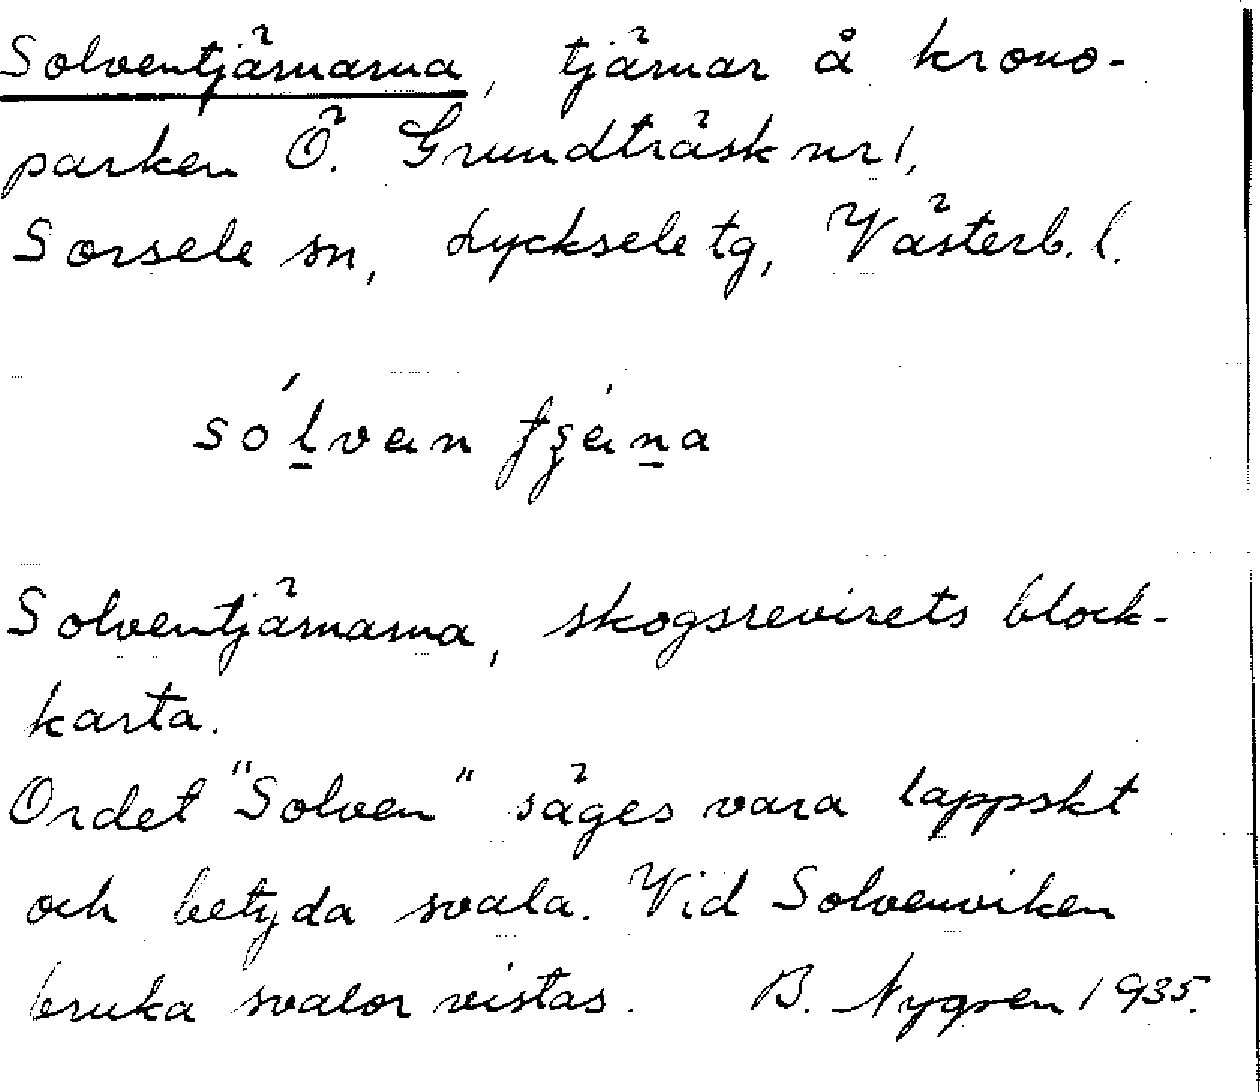 Solventjärnarna, tjärnar å krono-
parken Ö. Grundträsk nr 1,
Sorsele sn, Lycksele tg, Västerb. l.
sólvan
Solventjärnarna, skogsrevirets block-
karta.
Ordet "Solven" säges vara lappskt
och betyda svala. Vid Solvenviken
bruka svalor vistas. B. Nygren 1935.